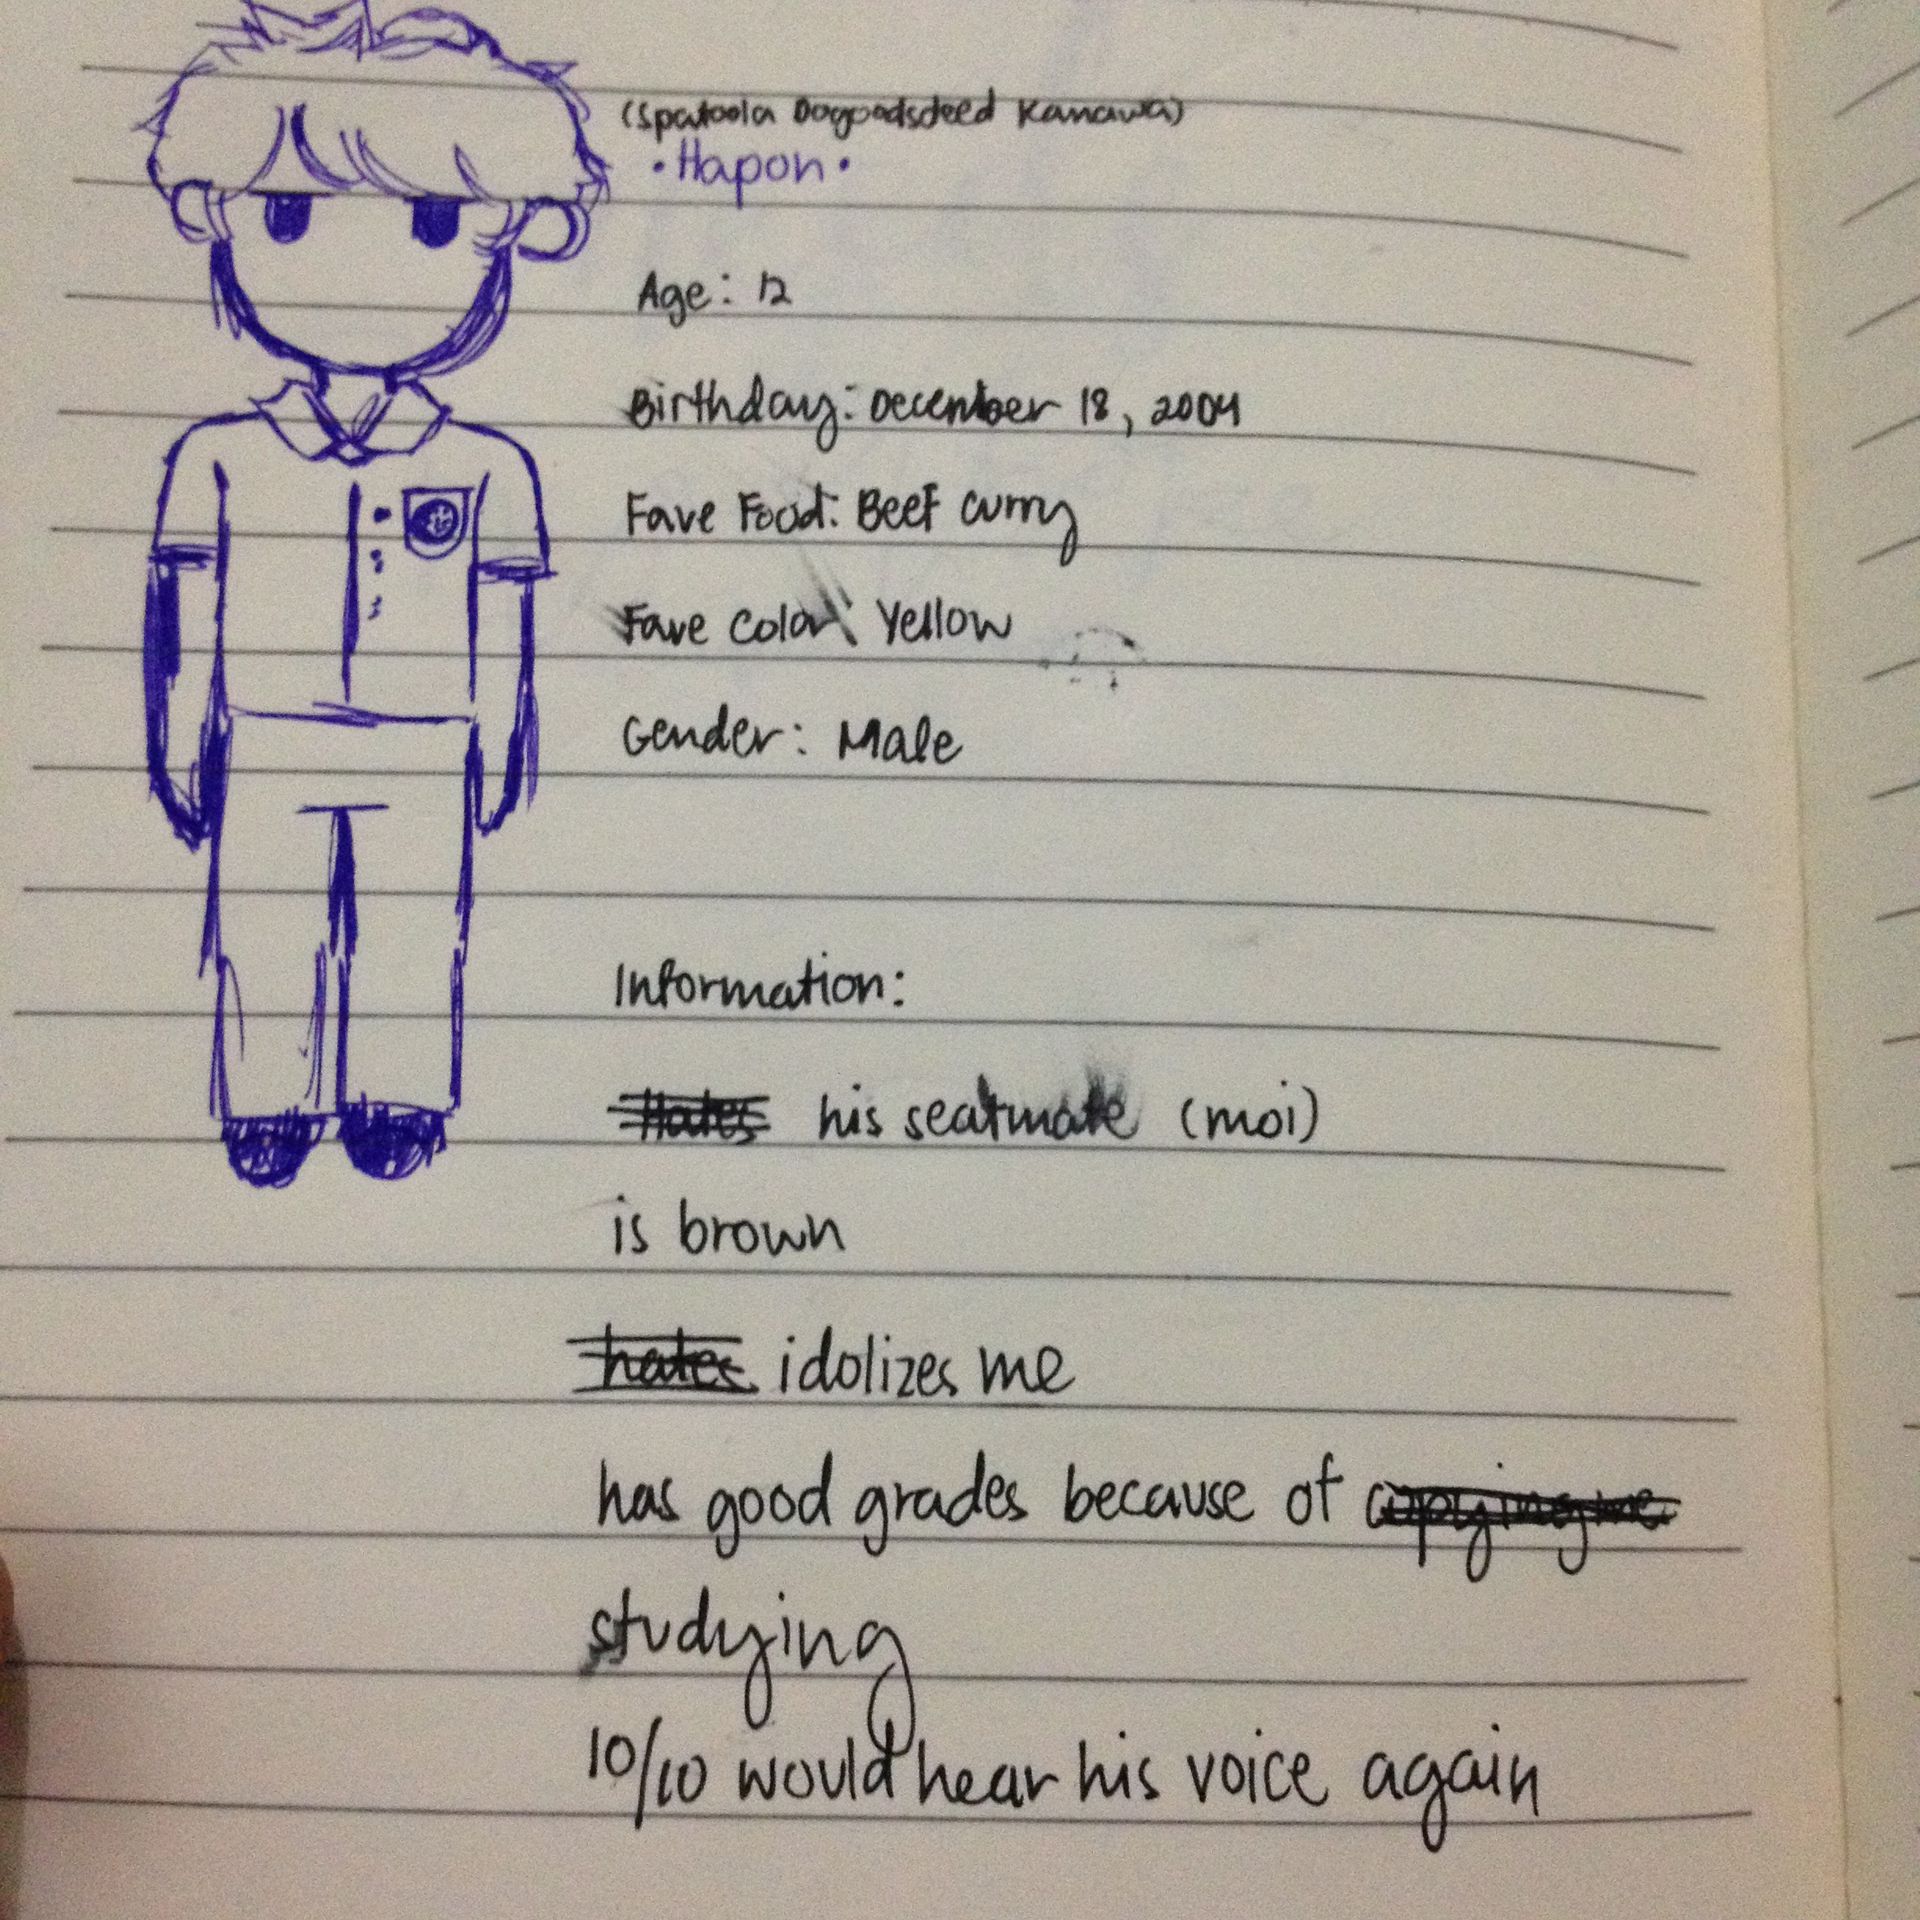 (Spatoola Dogoodsdeed Kanawa)
•Hapon•
Age: 12
Birthday: December 18, 2004
Fave Food: Beef curry
Fave Color: Yellow
Gender: Male
Information:
Hates his seatmate (moi)
is brown
hates idolizes me
has good grades because of copying me
studying
10/10 would hear his voice again